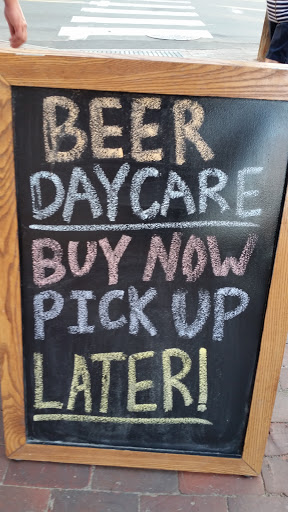 BEER
DAYCARE
BUY NOW
PICK UP
LATER!